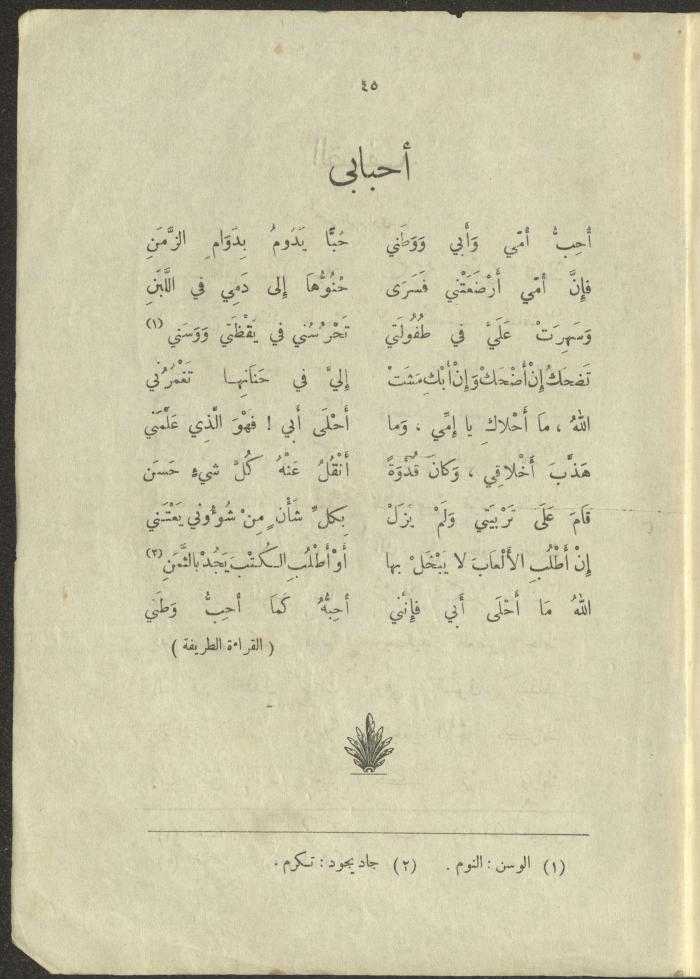 ٤٥
أحبابي
أُحِبُّ أُمّي وَأَبي وَوَطَني حُبًّا يَدُومُ بِدَوَامِ الزَّمَنِ
فإِنَّ أُمّي أَرْضَعَتْني فَسَرَى حُنُوُّهَا إِلى دَمِي في اللَّبَنِ
وَسَهِرَتْ عَلَيَّ في طُفُولَتي تَحْرُسُني في يَقْظَتي وَوَسَني (١)
تَضحَكُ إِنْ أَضْحَكْ وَإِنْ أَبْكِ مَشَتْ إِليَّ في حَنَانِهـا تَغْمُرُني
اللهُ ، مَا أَحْلاكِ يا إِمّي ، وَما أَحْلَى أَبي ! فهْوَ الَّذِي عَلَّمَني
هَذَّبَ أَخْلاقِي ، وَكانَ قُدْوَةً أَنْقُلُ عَنْهُ كُلَّ شيءٍ حَسَن
قَامَ عَلَى تَرْبِيَتي وَلَمْ يَزَلْ بِكلِّ شَأْنٍ مِنْ شُؤُوني يَعْتَني
إِنْ أَطْلُبِ الأَلْعَابَ لا يَبْخَلْ بها أَوْ أَطْلُبِ الـكُتْبَ يَجُدْ بالثَّمَنِ (٢)
اللهُ مَا أَحْلَى أَبي فإِنَّني أُحِبُّهُ كَمَا أُحِبُّ وَطَني
( القراءة الطريفة )
(١) الوسن : النوم . (٢) جاد يجود : تـكرم .